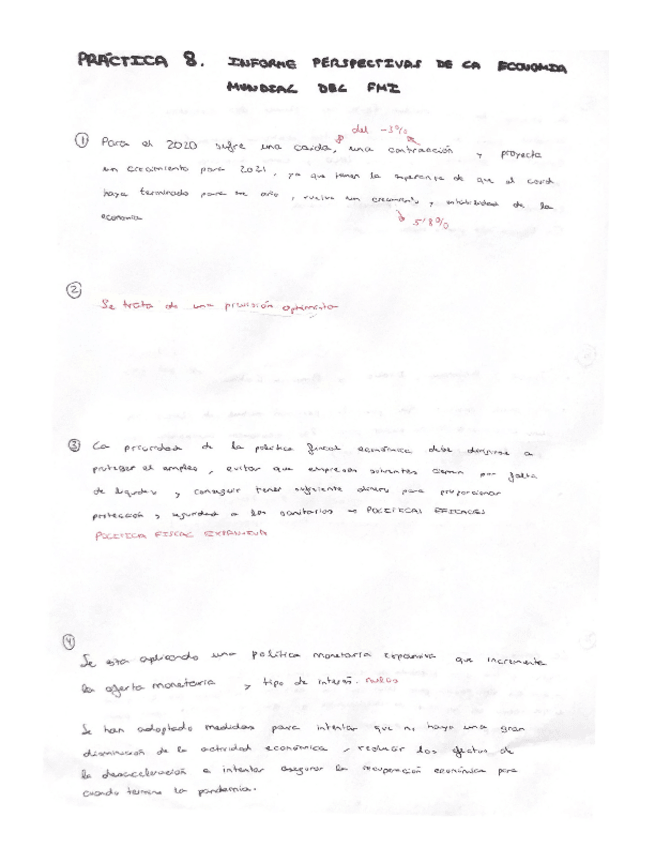 PRÁCTICA 8. INFORME PERSPECTIVAS DE LA ECONOMIA
MUNDIAL DEL FMI
del -3%
① Para el 2020 sufre una caida, una contracción y proyecta
un crecimiento para 2021, ya que tienen la esperanza de que el covid
haya terminado para ese año, vuelva un crecimiento y estabilidad de la
economia
5'8%
②
Se trata de una previsión optimista
③ La prioridad de la politica fiscal económica debe dirigirse a
proteger el empleo, evitar que empresas solventes cierren por falta
de liquidez y conseguir tener suficiente dinero para proporcionar
protección y seguridad a los sanitarios → POLITICAS EFICACES
POLITICA FISCAL EXPANSIVA
④
Se esta aplicando una política monetaria expansiva que incrementa
la oferta monetaria y tipo de interés. nulos
Se han adoptado medidas para intentar que no haya una gran
disminución de la actividad económica, reducir los efectos de
la desaceleración e intentar asegurar la recuperación económica para
cuando termine la pandemia.